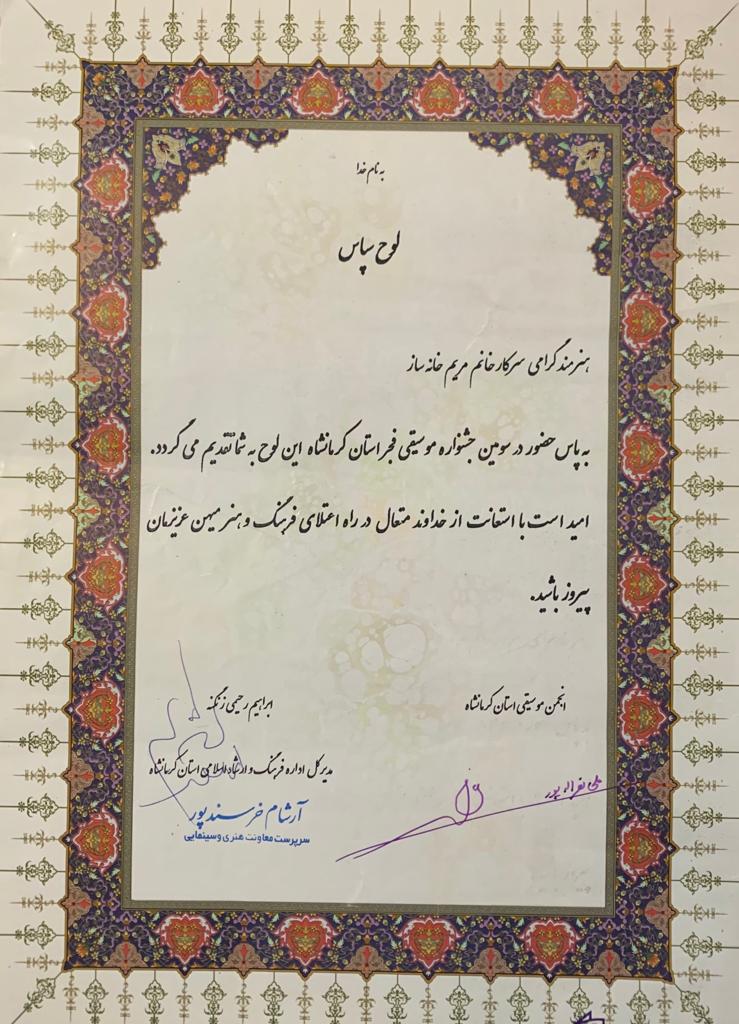 به نام خدا
لوح سپاس
هنرمند گرامی سرکار خانم مریم خانه ساز
به پاس حضور در سومین جشنواره موسیقی فجر استان کرمانشاه این لوح به شما تقدیم می گردد.
امید است با استعانت از خداوند متعال در راه اعتلای فرهنگ و هنر میهن عزیزمان
پیروز باشید.
انجمن موسیقی استان کرمانشاه
ابراهیم رحیمی زنگنه
مدیرکل اداره فرهنگ و ارشاد اسلامی استان کرمانشاه
آرشام خرسندپور
سرپرست معاونت هنری و سینمایی